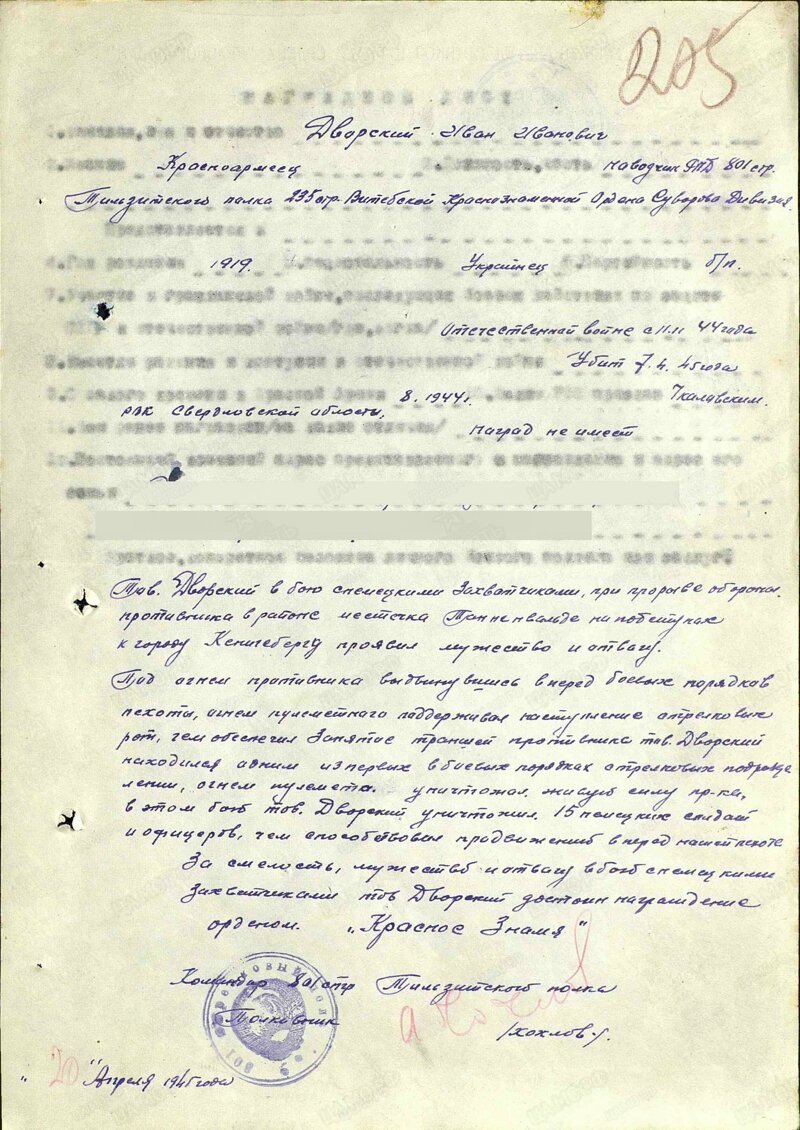 205
НАГРАДНОЙ ЛИСТ
1. Фамилия, имя и отчество Дворский Иван Иванович
2. Звание Красноармеец 3. Должность, часть наводчик 801 стр.
Тильзитского полка 235 стр. Витебской Краснознаменной Ордена Суворова Дивизия.
Представляется к
4. Год рождения 1919. 5. Национальность Украинец 6. Партийность б/п.
7. Участие в гражданской войне, последующих боевых действиях по защите
СССР и отечественной войне Отечественной войне с 11.11 44 года
8. Имеет ли ранения и контузии в отечественной войне Убит 7.4.45 года
9. С какого времени в Красной Армии 8.1944 г. 10. Каким РВК призван Чкаловским.
рвк Свердловской области,
11. Чем ранее награжден /за какие отличия/ наград не имеет
12. Постоянный домашний адрес представляемого к награждению и адрес его
семьи
Краткое, конкретное изложение личного боевого подвига или заслуг:
Тов. Дворский в бою с немецкими захватчиками, при прорыве обороны.
противника в районе местечка Танненвальде на побступах
к городу Кенигебергу проявил мужество и отвагу.
Под огнем противника выдвинувшись вперед боевых порядков
пехоты, огнем пулеметнаго поддержал наступление стрелковых
рот, чем обеспечил занятие траншей противника тов. Дворский
находился адним из первых в боевых порядках стрелковых подразде
лении, огнем пулемета. уничтожал живую силу пр-ка,
в этом бою тов. Дворский уничтожил. 15 немецких солдат
и офицеров, чем способствовал продвижению вперед нашей пехоте
За смелость, мужество и отвагу в бою с немецкими
захватчиками тов Дворский достоин награждение
орденом. „Красное Знамя"
Командир 801 стр Тильзитского полка
Полковник /Хохлов/.
"20" Апреля 1945 года